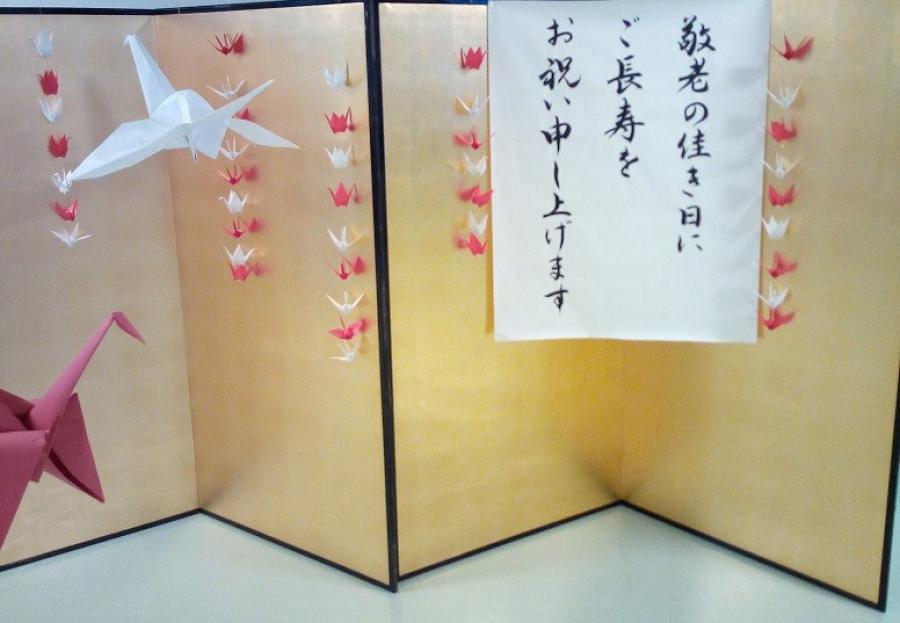 敬老の佳き日に
ご長寿を
お祝い申し上げます